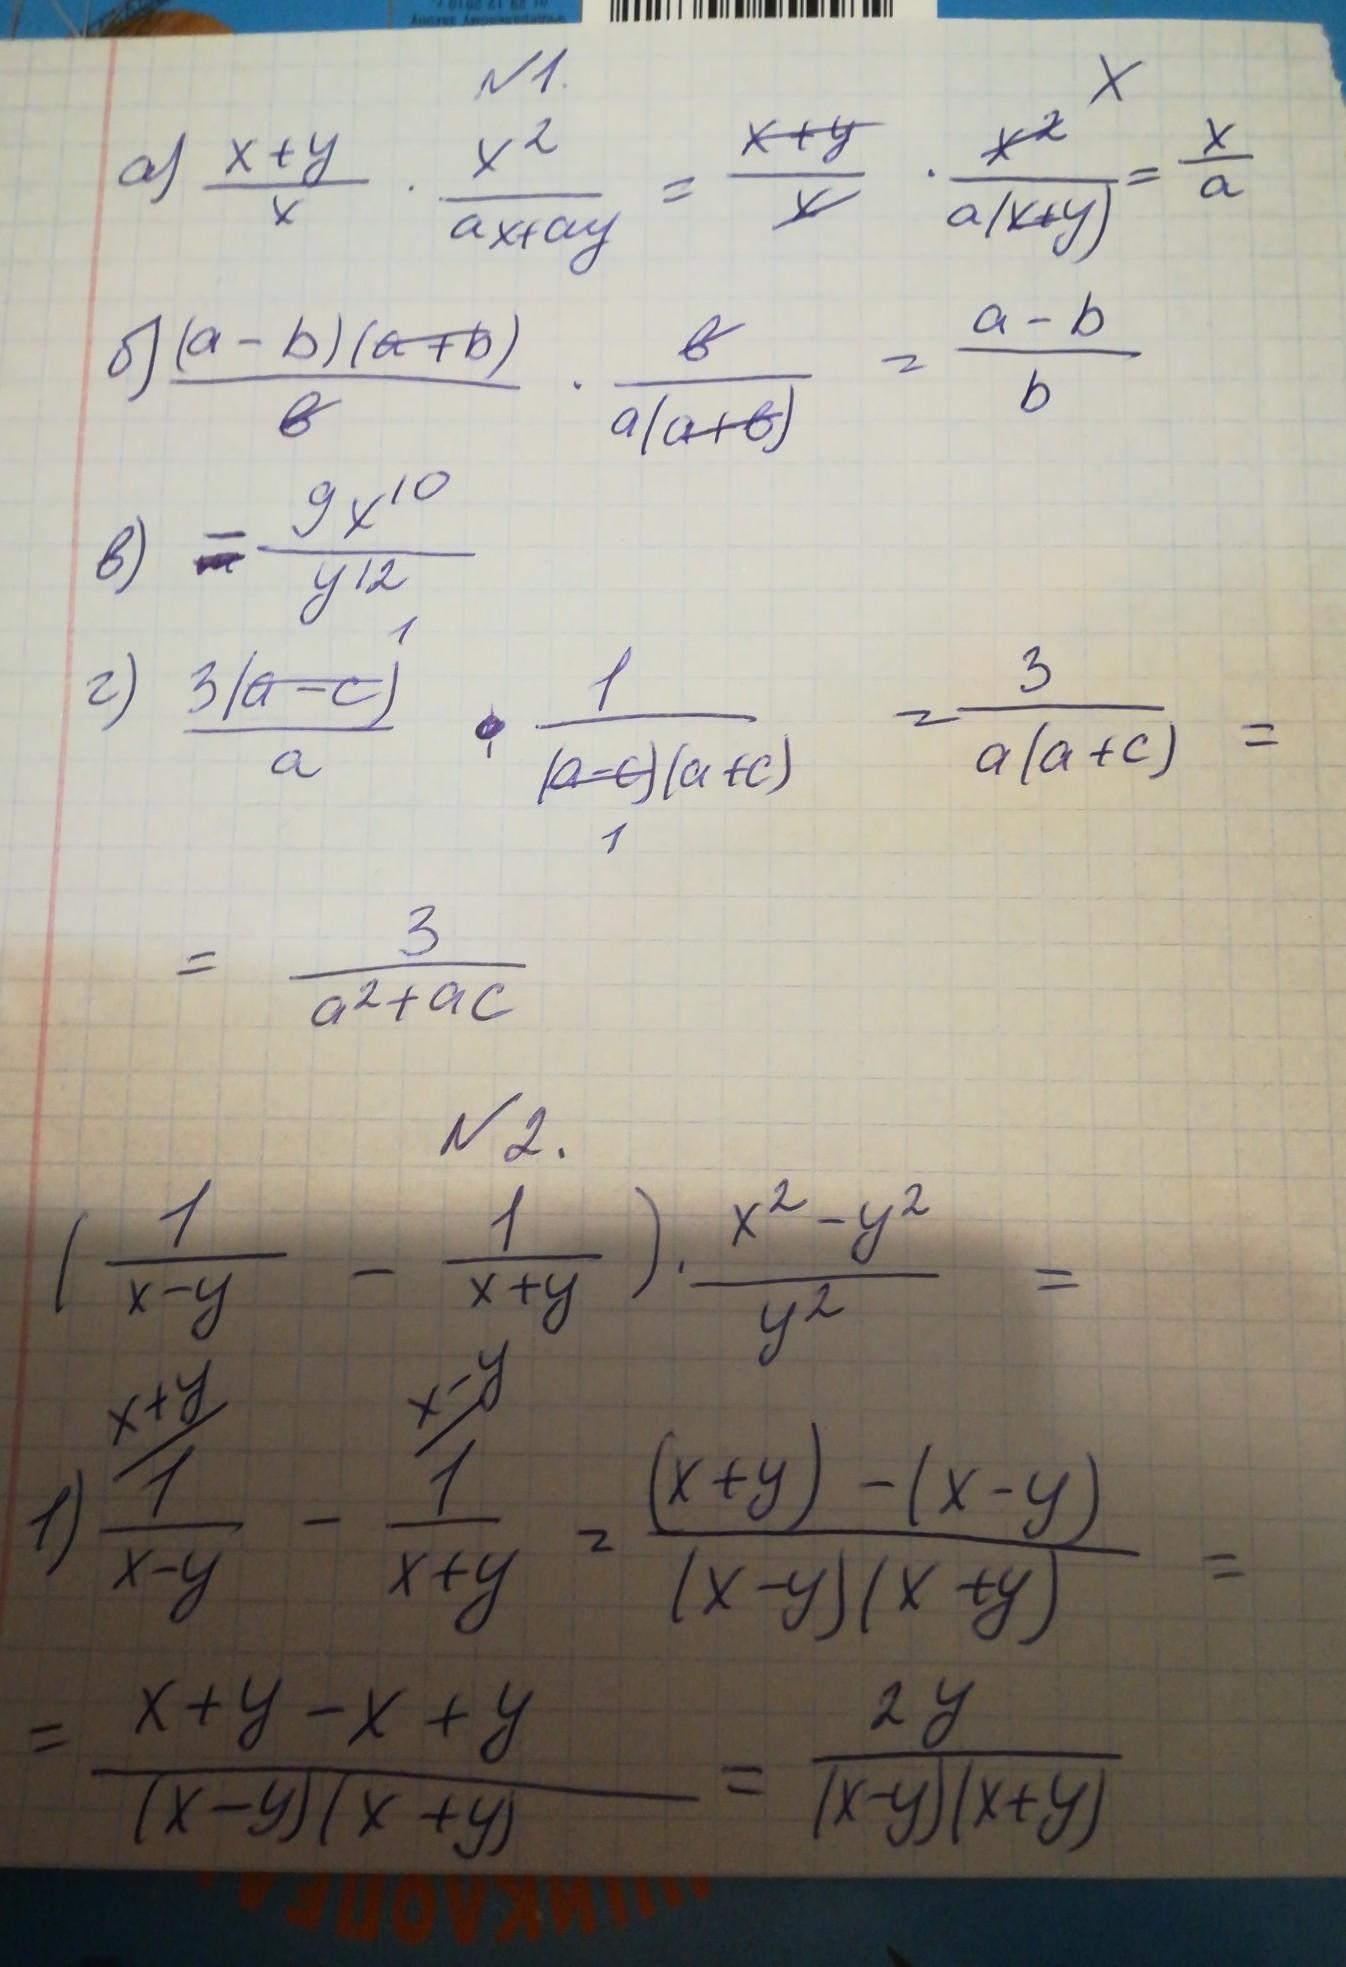 N1.
а) (x+y)/x · x²/(ax+ay) = (x+y)/x · x²/(a(x+y)) = x/a
x
б) (a-b)(a+b)/в · в/(a(a+в)) = (a-b)/b
в) = 9x¹⁰/y¹²
г) 3(a-c)/a · 1/((a-c)(a+c)) = 3/(a(a+c)) =
1
1
= 3/(a²+ac)
N2.
(1/(x-y) - 1/(x+y)) · (x²-y²)/y² =
x+y/ x-y/
1) 1/(x-y) - 1/(x+y) = ((x+y)-(x-y))/((x-y)(x+y)) =
= (x+y-x+y)/((x-y)(x+y)) = 2y/((x-y)(x+y))